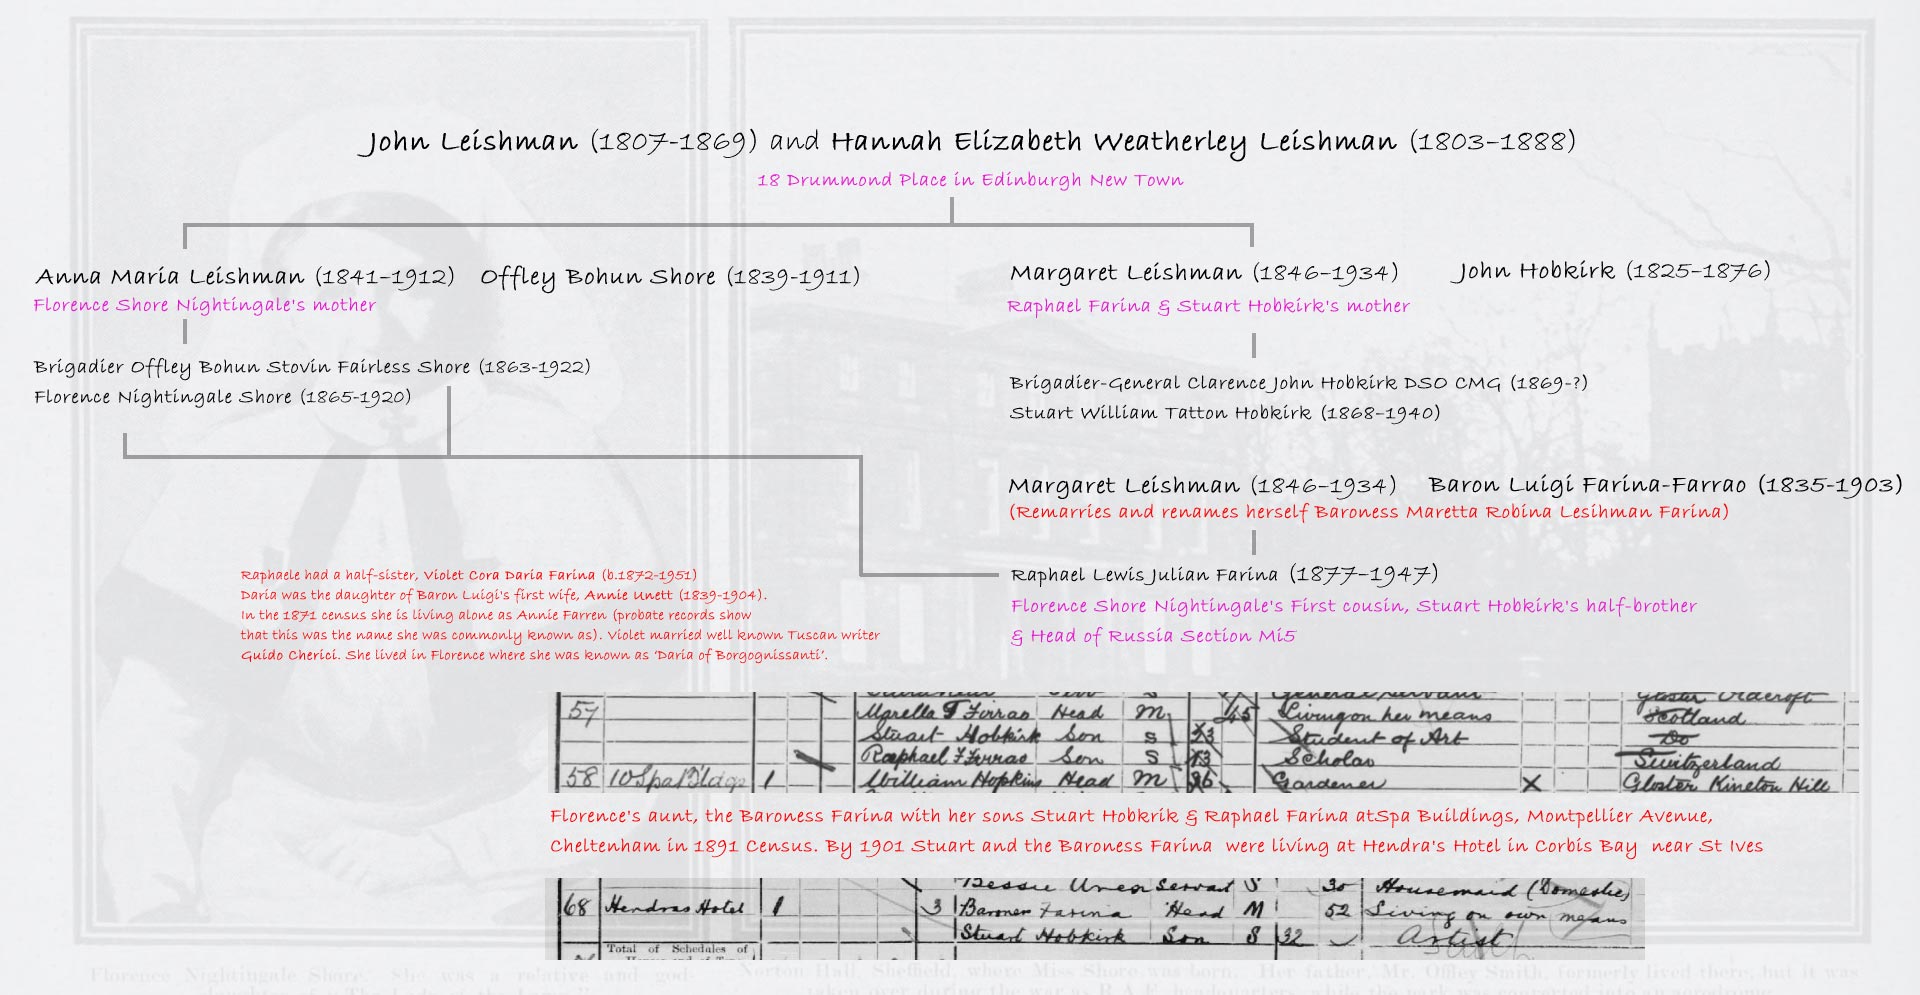 John Leishman (1807-1869) and Hannah Elizabeth Weatherley Leishman (1803-1888)
18 Drummond Place in Edinburgh New Town
Anna Maria Leishman (1841-1912) Offley Bohun Shore (1839-1911)
Florence Shore Nightingale's mother
Margaret Leishman (1846-1934) John Hobkirk (1825-1876)
Raphael Farina & Stuart Hobkirk's mother
Brigadier Offley Bohun Stovin Fairless Shore (1863-1922)
Florence Nightingale Shore (1865-1920)
Brigadier-General Clarence John Hobkirk DSO CMG (1869-?)
Stuart William Tatton Hobkirk (1868-1940)
Margaret Leishman (1846-1934) Baron Luigi Farina-Farrao (1835-1903)
(Remarries and renames herself Baroness Maretta Robina Lesihman Farina)
Raphael Lewis Julian Farina (1877-1947)
Florence Shore Nightingale's First cousin, Stuart Hobkirk's half-brother
& Head of Russia Section Mi5
Raphaele had a half-sister, Violet Cora Daria Farina (b.1872-1951)
Daria was the daughter of Baron Luigi's first wife, Annie Unett (1839-1904).
In the 1871 census she is living alone as Annie Farren (probate records show
that this was the name she was commonly known as). Violet married well known Tuscan writer
Guido Cherici. She lived in Florence where she was known as 'Daria of Borgognissanti'.
General Servant Gloster
57 Head M 45 Living on her means Scotland
Stuart Hobkirk Son S 23 Student of Art Do
Raphael Son S 13 Scholar Switzerland
58 10 Spa Bldgs 1 William Hopkins Head M 36 Gardener X Gloster Kineton Hill
Florence's aunt, the Baroness Farina with her sons Stuart Hobkrik & Raphael Farina atSpa Buildings, Montpellier Avenue,
Cheltenham in 1891 Census. By 1901 Stuart and the Baroness Farina were living at Hendra's Hotel in Corbis Bay near St Ives
Bessie Servant S 30 Housemaid (Domestic)
68 Hendras Hotel 1 3 Baroness Farina Head M 52 Living on own means
Stuart Hobkirk Son S 32 Artist
Total of Schedules of
Florence Nightingale Shore. She was a relative and god-
Norton Hall, Sheffield, where Miss Shore was born. Her father, Mr. Offley Smith, formerly lived there, but it was